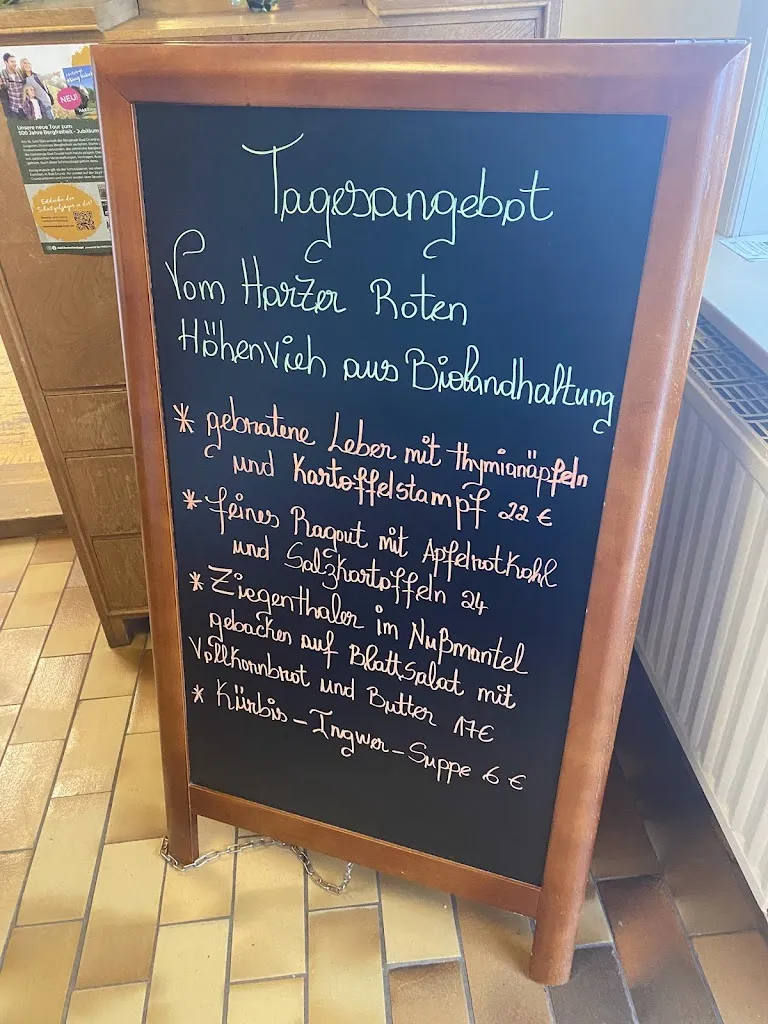 Tagesangebot
Vom Harzer Roten
Höhenvieh aus Biolandhaltung
* gebratene Leber mit Thymianäpfeln
und Kartoffelstampf 22 €
* feines Ragout mit Apfelrotkohl
und Salzkartoffeln 24
* Ziegenthaler im Nußmantel
gebacken auf BlattSalat mit
Vollkornbrot und Butter 17€
* Kürbis-Ingwer-Suppe 6 €
NEU!
Unsere neue Tour zum
500 Jahre Bergfreiheit - Jubiläum